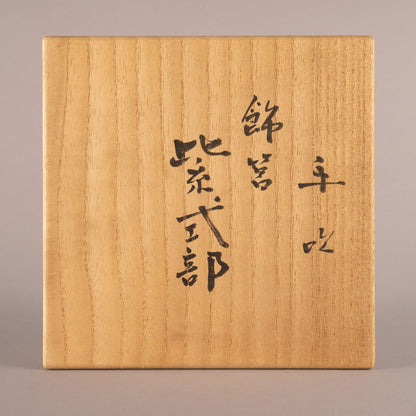 手吹
飾筥
紫式部